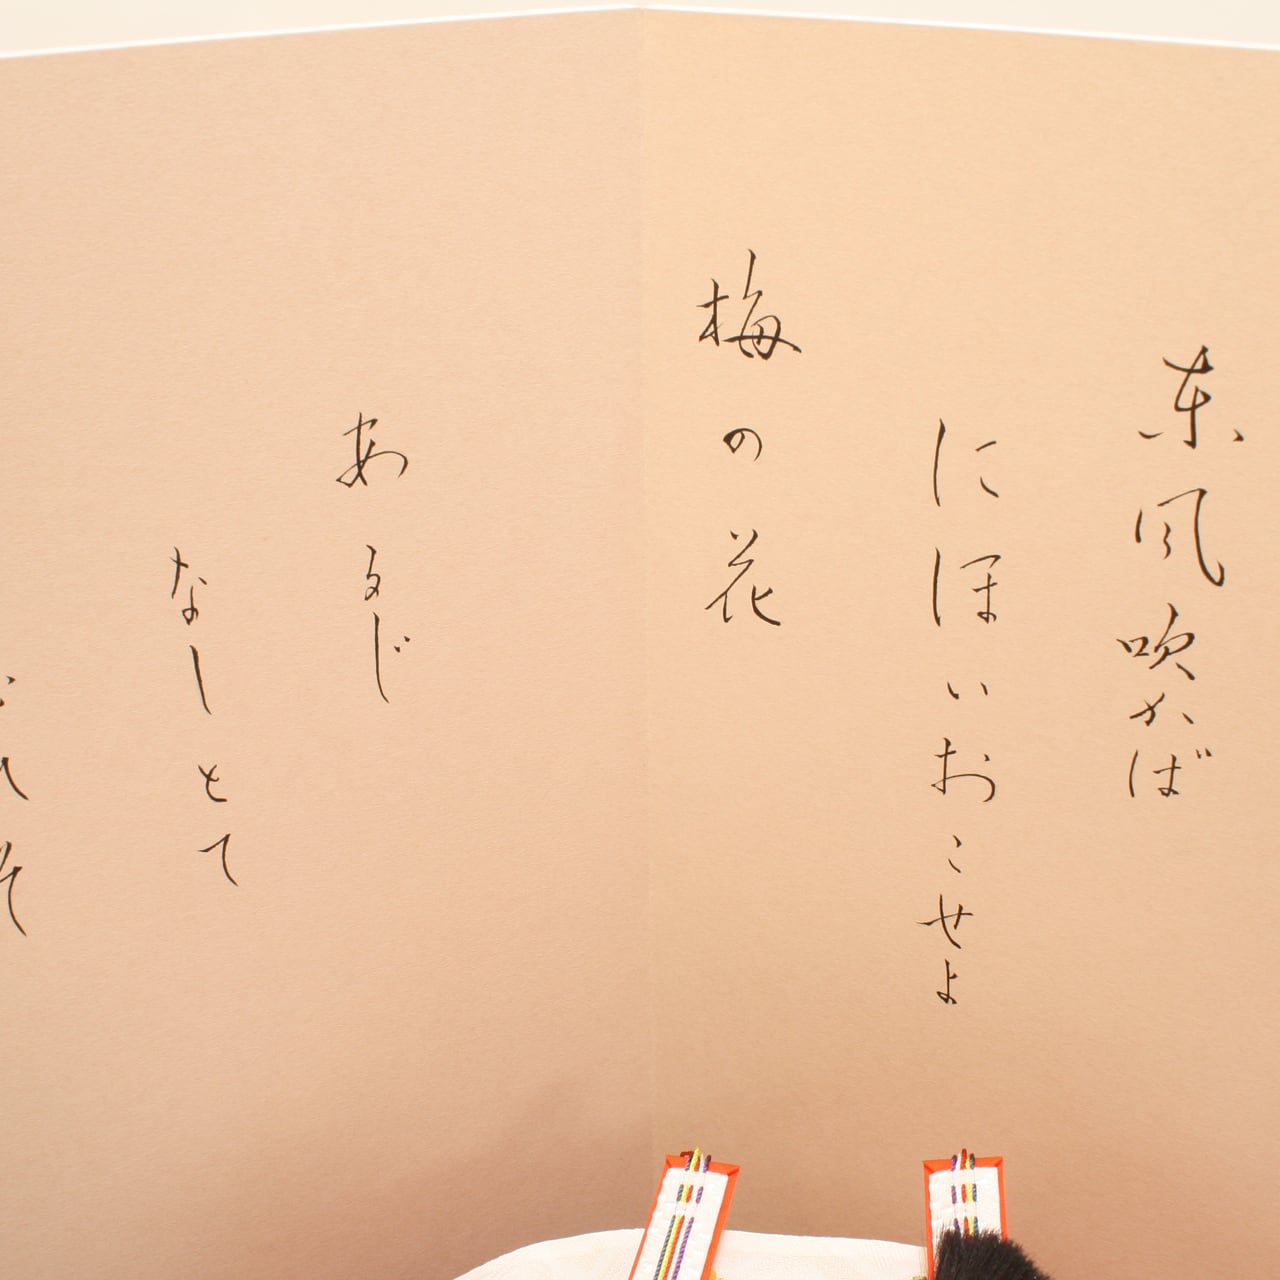 東風吹かば
にほいおこせよ
梅の花
あるじ
なしとて